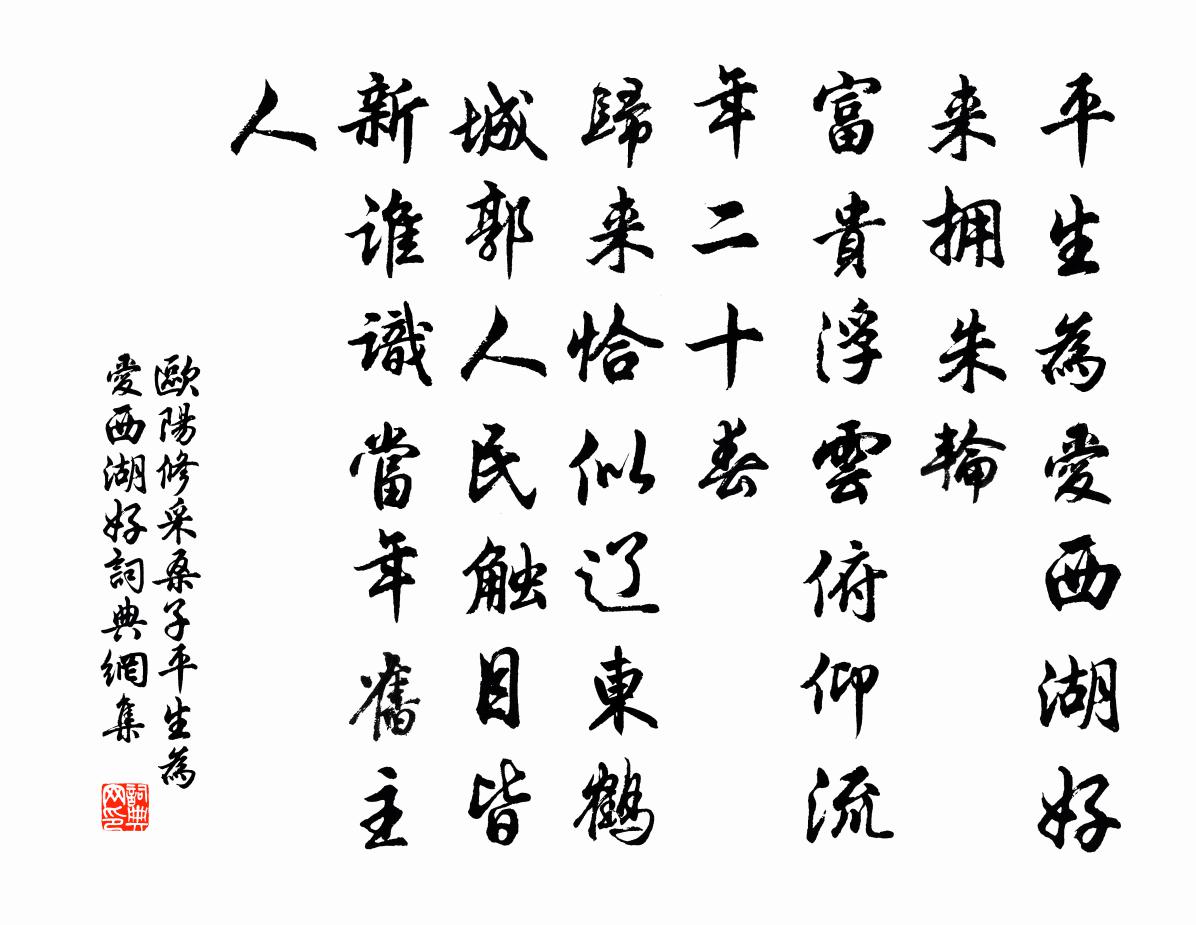 平生為愛西湖好
来拥朱輪
富貴浮雲俯仰流
年二十春
歸来恰似辽東鶴
城郭人民触目皆
新誰識當年舊主
人
歐陽修采桑子平生為
愛西湖好詞典網集
詞典
网印